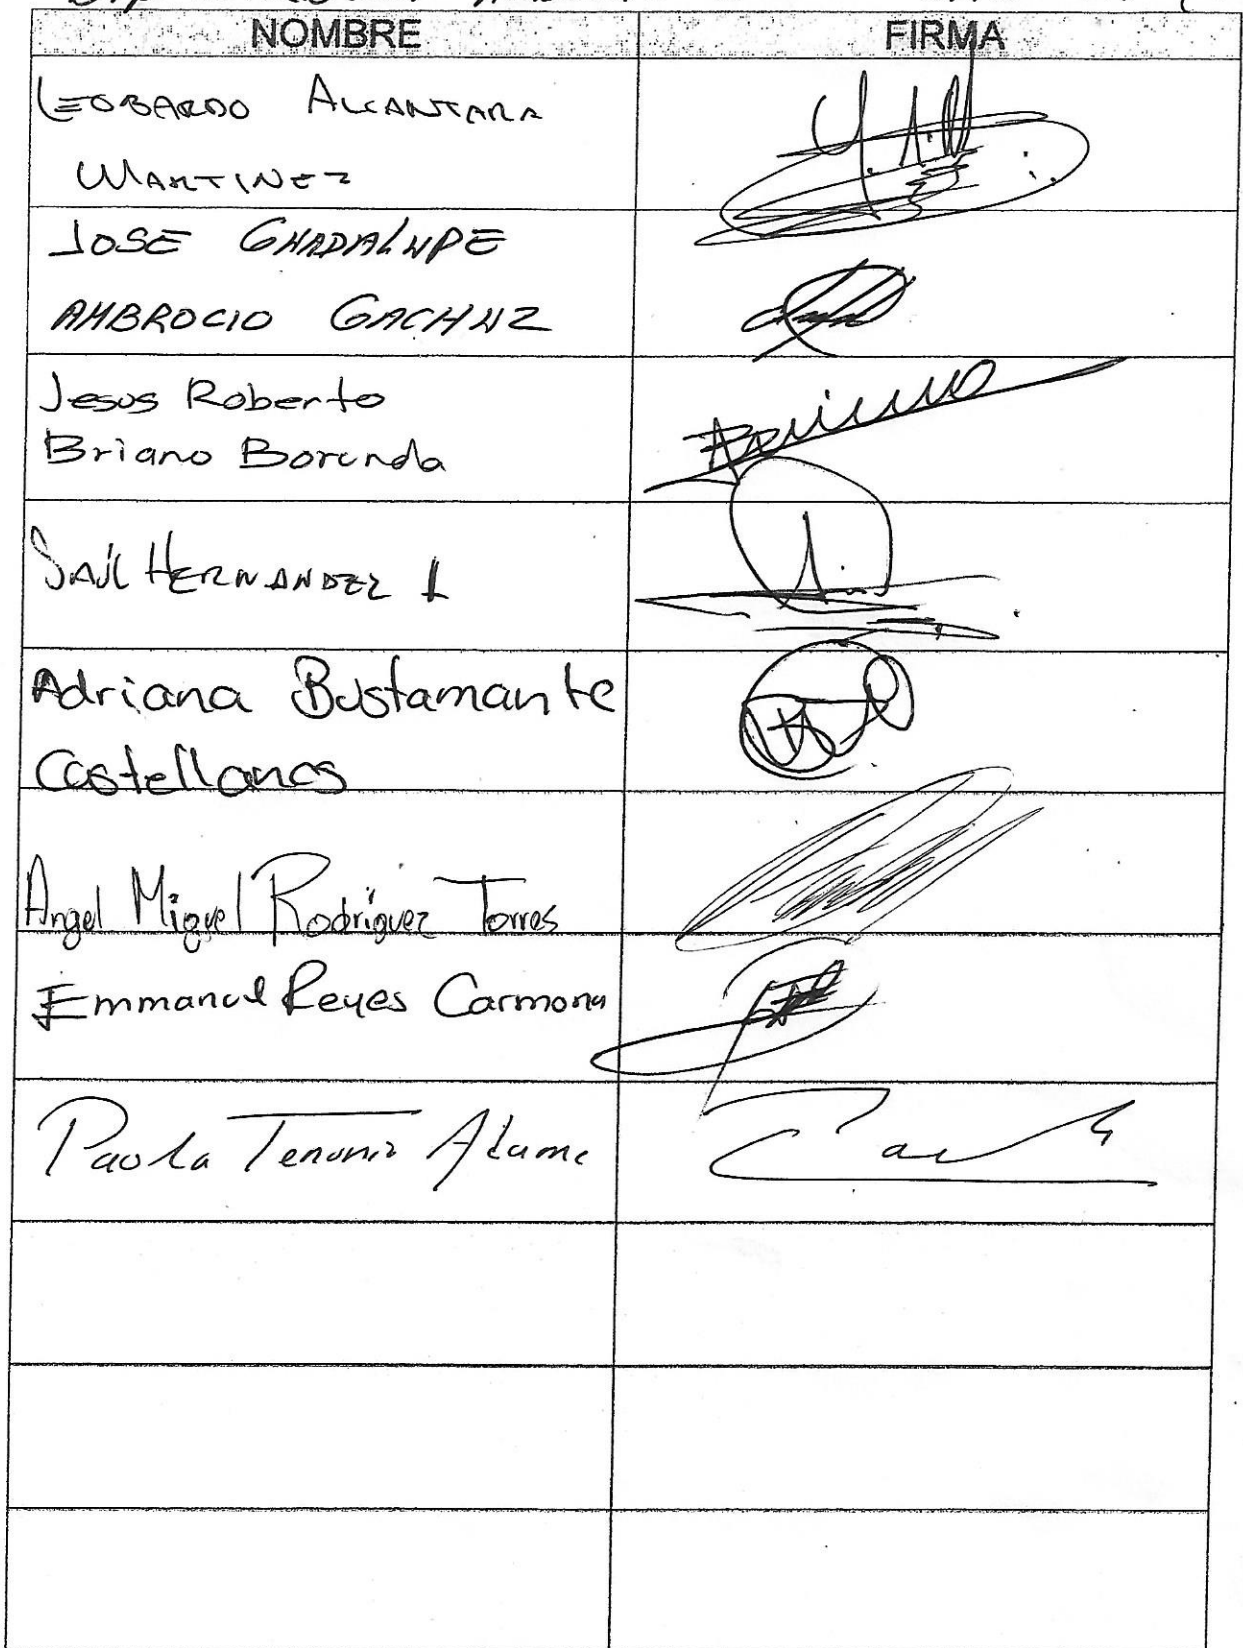 NOMBRE FIRMA
LEOBARDO ALCANTARA
MARTINEZ
JOSE GUADALUPE
AMBROCIO GACHUZ
Jesus Roberto
Briano Borunda
SAÚL HERNANDEZ
Adriana Bustamante
Castellanos
Angel Miguel Rodríguez Torres
Emmanuel Reyes Carmona
Paola Tenorio Adame